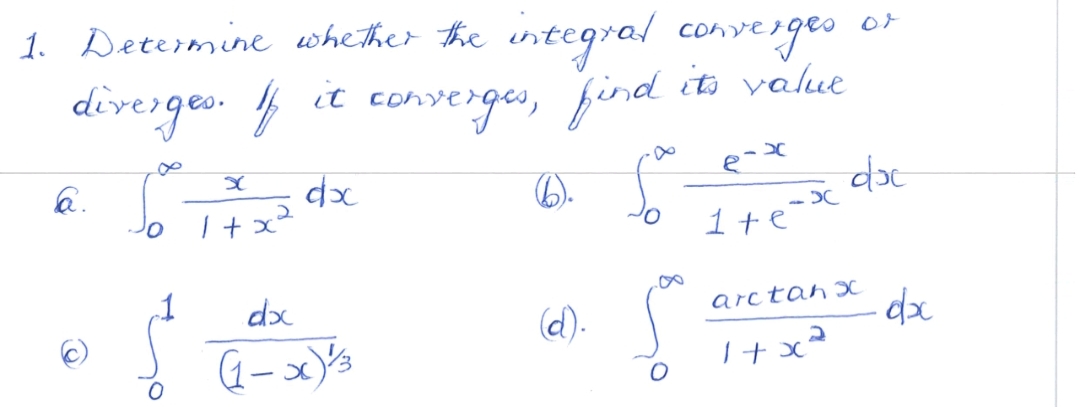 1. Determine whether the integral converges or
diverges. If it converges, find its value
a. ∫₀^∞ x/(1+x²) dx (b). ∫₀^∞ e^(-x)/(1+e^(-x)) dx
(c) ∫₀^1 dx/(1-x)^(1/3) (d). ∫₀^∞ arctan x/(1+x²) dx